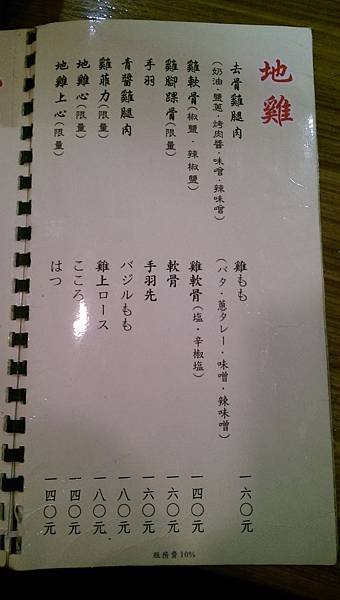 地雞
去骨雞腿肉 雞もも 一六〇元
（奶油·鹽蔥·烤肉醬·味噌·辣味噌） （バタ·蔥タレー·味噌·辣味噌）
雞軟骨（椒鹽·辣椒鹽） 雞軟骨（塩·辛椒塩） 一四〇元
雞腳踝骨（限量） 軟骨 一六〇元
手羽 手羽先 一六〇元
青醬雞腿肉 バジルもも 一八〇元
雞菲力（限量） 雞上ロース 一八〇元
地雞心（限量） こころ 一四〇元
地雞上心（限量） はつ 一四〇元
服務費10%